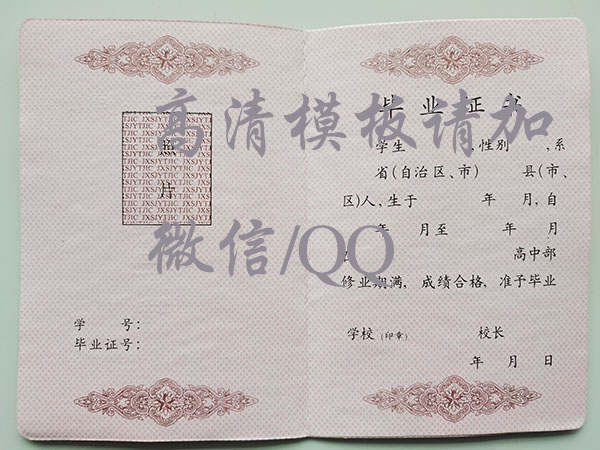 高清模板请加
微信/QQ
JXSJYTJIC JXSJYTJIC
照
片
学 号：
毕业证号：
毕业证书
学生 ，性别 ，系
省(自治区、市) 县(市、
区)人，生于 年 月，自
年 月至 年 月
在 高中部
修业期满，成绩合格，准予毕业
学校（印章） 校长
年 月 日